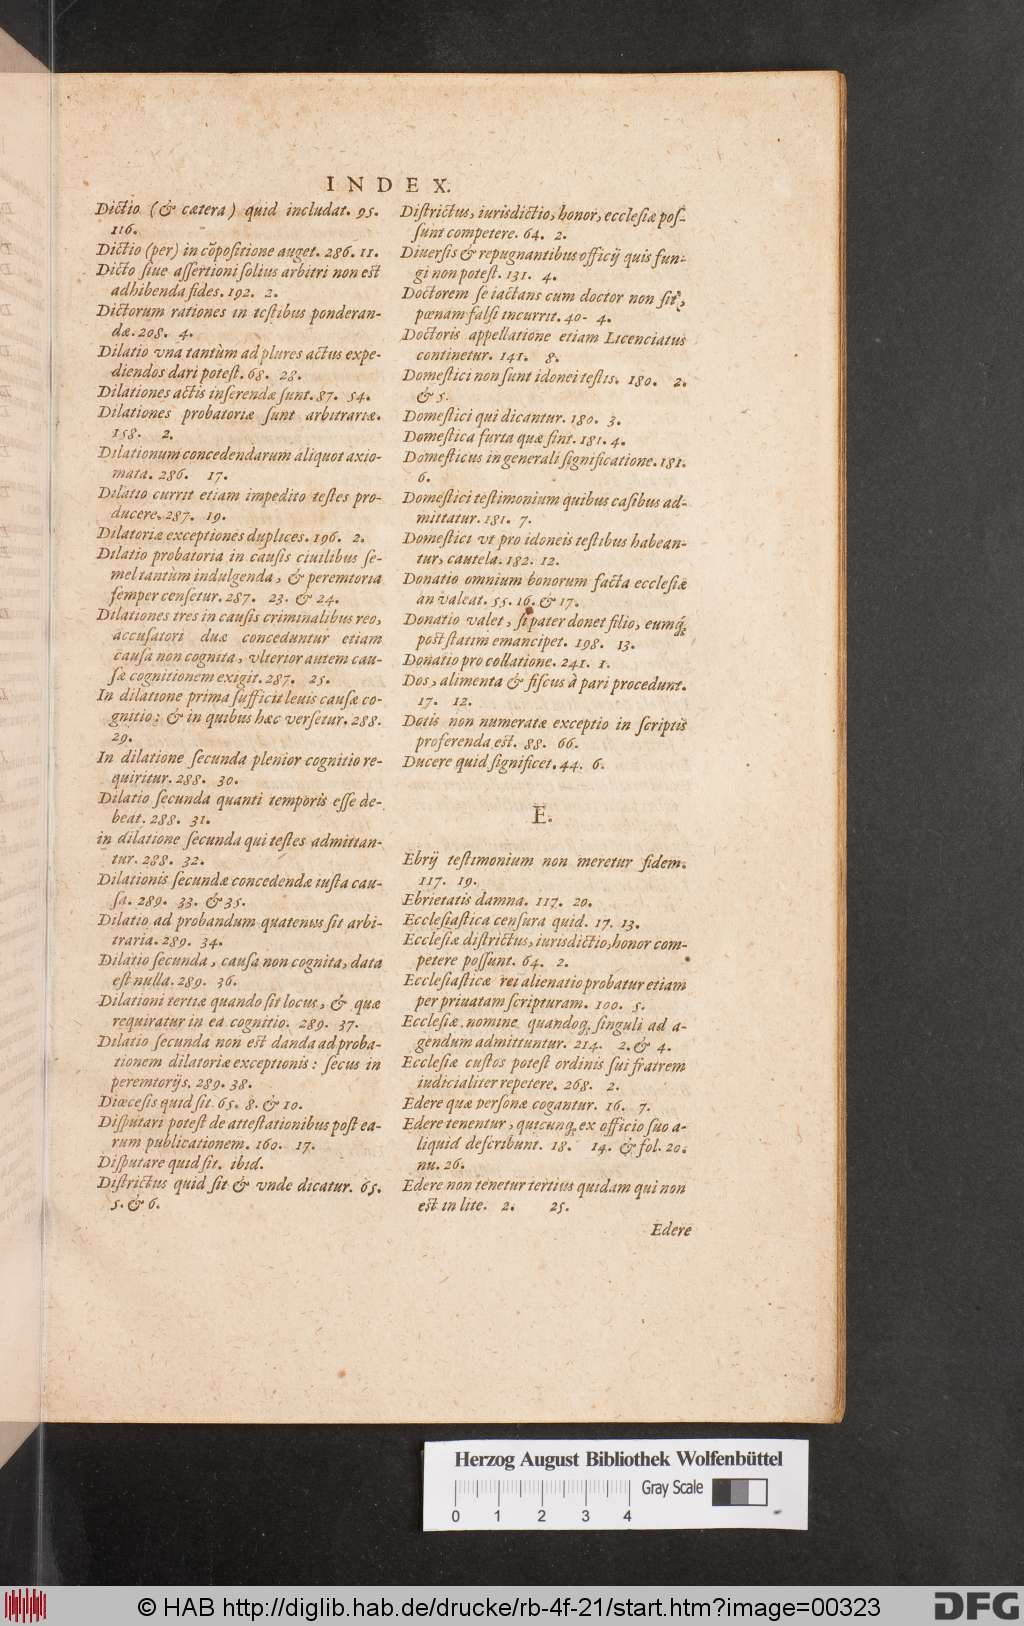 INDEX.
Dictio (& cætera) quid includat. 95.
116.
Dictio (per) in cōpositione auget. 286. 11.
Dicto siue assertioni solius arbitri non est
adhibenda fides. 192. 2.
Dictorum rationes in testibus ponderan-
dæ. 208. 4.
Dilatio vna tantùm ad plures actus expe-
diendos dari potest. 68. 28.
Dilationes actis inserendæ sunt. 87. 54.
Dilationes probatoriæ sunt arbitrariæ.
158. 2.
Dilationum concedendarum aliquot axio-
mata. 286. 17.
Dilatio currit etiam impedito testes pro-
ducere. 287. 19.
Dilatoriæ exceptiones duplices. 196. 2.
Dilatio probatoria in causis ciuilibus se-
mel tantùm indulgenda, & peremtoria
semper censetur. 287. 23. & 24.
Dilationes tres in causis criminalibus reo,
accusatori duæ conceduntur etiam
causa non cognita, vlterior autem cau-
sæ cognitionem exigit. 287. 25.
In dilatione prima sufficit leuis causæ co-
gnitio: & in quibus hæc versetur. 288.
29.
In dilatione secunda plenior cognitio re-
quiritur. 288. 30.
Dilatio secunda quanti temporis esse de-
beat. 288. 31.
in dilatione secunda qui testes admittan-
tur. 288. 32.
Dilationis secundæ concedendæ iusta cau-
sa. 289. 33. & 35.
Dilatio ad probandum quatenus sit arbi-
traria. 289. 34.
Dilatio secunda, causa non cognita, data
est nulla. 289. 36.
Dilationi tertiæ quando sit locus, & quæ
requiratur in ea cognitio. 289. 37.
Dilatio secunda non est danda ad proba-
tionem dilatoriæ exceptionis: secus in
peremtorijs. 289. 38.
Diœcesis quid sit. 65. 8. & 10.
Disputari potest de attestationibus post ea-
rum publicationem. 160. 17.
Disputare quid sit. ibid.
Districtus quid sit & vnde dicatur. 65.
5. & 6.
Districtus, iurisdictio, honor, ecclesiæ pos-
sunt competere. 64. 2.
Diuersis & repugnantibus officij quis fun-
gi non potest. 131. 4.
Doctorem se iactans cum doctor non sit,
pœnam falsi incurrit. 40. 4.
Doctoris appellatione etiam Licenciatus
continetur. 141. 8.
Domestici non sunt idonei testis. 180. 2.
& 5.
Domestici qui dicantur. 180. 3.
Domestica furta quæ sint. 181. 4.
Domesticus in generali significatione. 181.
6.
Domestici testimonium quibus casibus ad-
mittatur. 181. 7.
Domestici vt pro idoneis testibus habean-
tur, cautela. 182. 12.
Donatio omnium bonorum facta ecclesiæ
an valeat. 55. 16. & 17.
Donatio valet, si pater donet filio, eumq́;
post statim emancipet. 198. 13.
Donatio pro collatione. 241. 1.
Dos, alimenta & fiscus à pari procedunt.
17. 12.
Dotis non numeratæ exceptio in scriptis
proferenda est. 88. 66.
Ducere quid significet. 44. 6.
E.
Ebrij testimonium non meretur fidem.
117. 19.
Ebrietatis damna. 117. 20.
Ecclesiastica censura quid. 17. 13.
Ecclesiæ districtus, iurisdictio, honor com-
petere possunt. 64. 2.
Ecclesiasticæ rei alienatio probatur etiam
per priuatam scripturam. 100. 5.
Ecclesiæ nomine quandoq; singuli ad a-
gendum admittuntur. 214. 2. & 4.
Ecclesiæ custos potest ordinis sui fratrem
iudicialiter repetere. 268. 2.
Edere quæ personæ cogantur. 16. 7.
Edere tenentur, quicunq; ex officio suo a-
liquid describunt. 18. 14. & fol. 20.
nu. 26.
Edere non tenetur tertius quidam qui non
est in lite. 2. 25.
Edere
Herzog August Bibliothek Wolfenbüttel
Gray Scale
0 1 2 3 4
© HAB http://diglib.hab.de/drucke/rb-4f-21/start.htm?image=00323
DFG